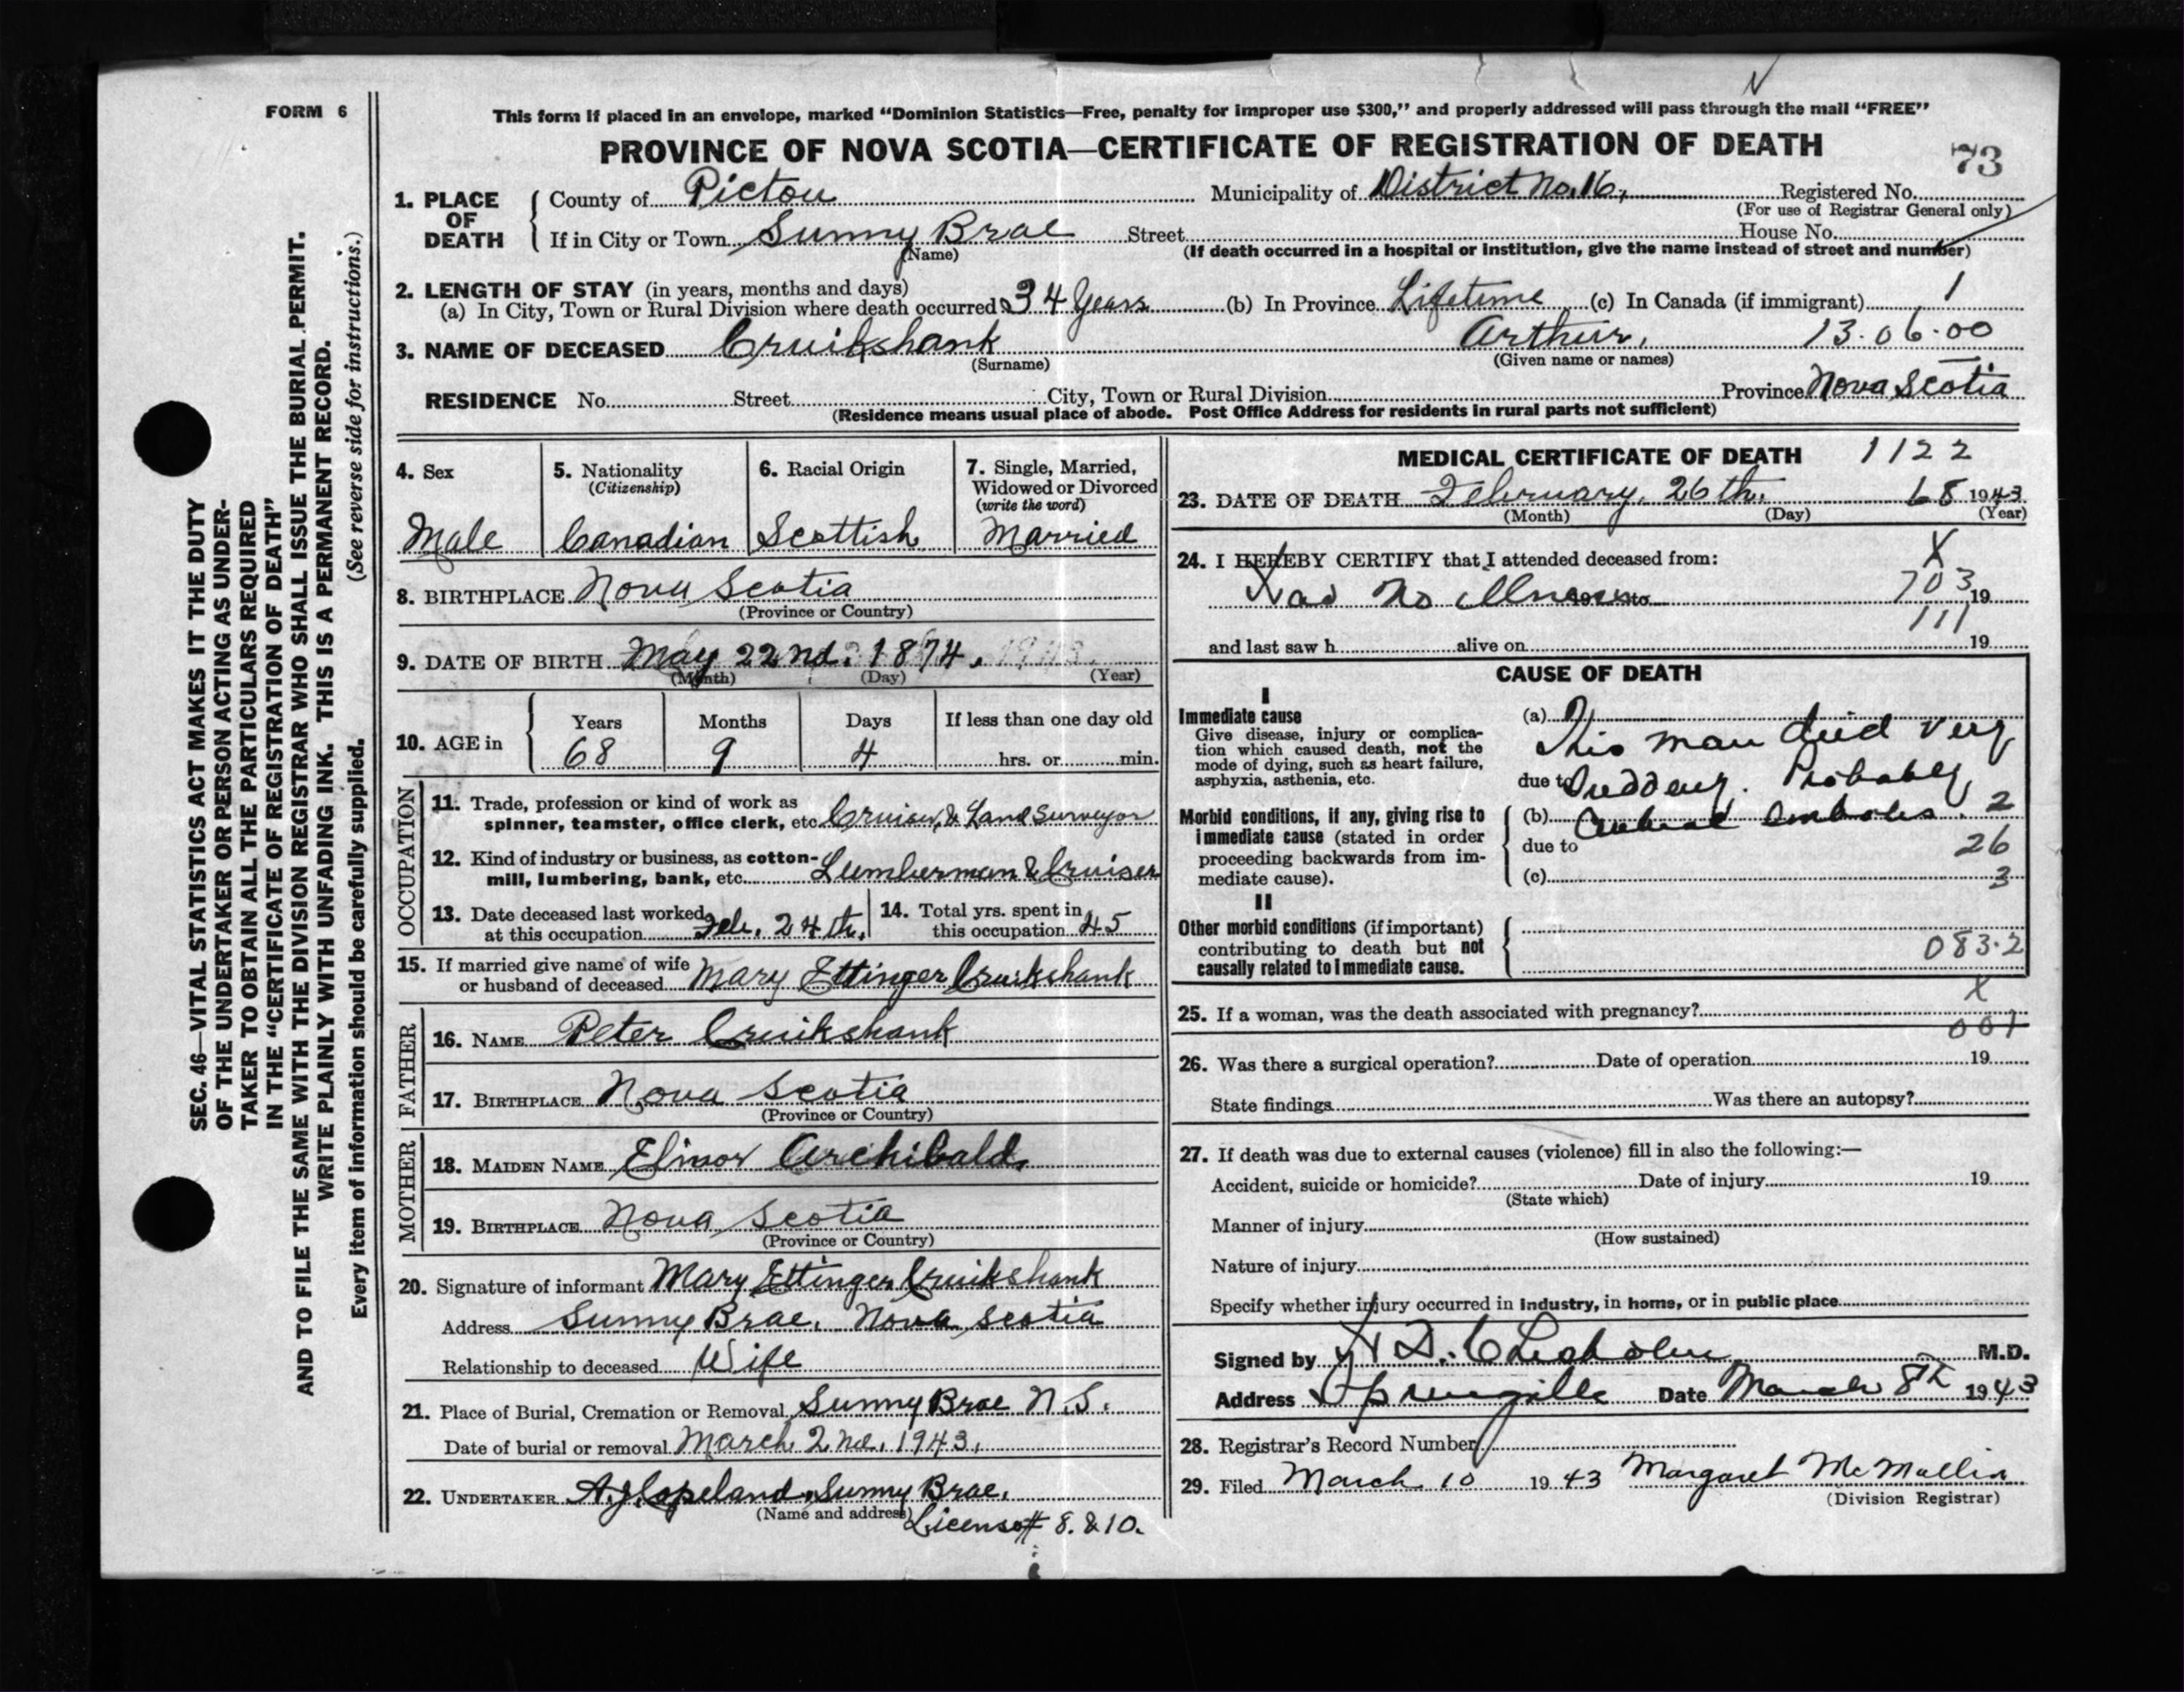 FORM 6
This form if placed in an envelope, marked "Dominion Statistics—Free, penalty for improper use $300," and properly addressed will pass through the mail "FREE"
PROVINCE OF NOVA SCOTIA—CERTIFICATE OF REGISTRATION OF DEATH
73
1. PLACE OF DEATH
County of Pictou Municipality of District No. 16, Registered No.
(For use of Registrar General only)
If in City or Town Sunny Brae Street House No.
(Name) (If death occurred in a hospital or institution, give the name instead of street and number)
2. LENGTH OF STAY (in years, months and days)
(a) In City, Town or Rural Division where death occurred 34 Years (b) In Province Lifetime (c) In Canada (if immigrant) 1
3. NAME OF DECEASED Cruikshank Arthur, 13.06.00
(Surname) (Given name or names)
RESIDENCE No. Street City, Town or Rural Division Province Nova Scotia
(Residence means usual place of abode. Post Office Address for residents in rural parts not sufficient)
SEC. 46—VITAL STATISTICS ACT MAKES IT THE DUTY
OF THE UNDERTAKER OR PERSON ACTING AS UNDER-
TAKER TO OBTAIN ALL THE PARTICULARS REQUIRED
IN THE "CERTIFICATE OF REGISTRATION OF DEATH"
AND TO FILE THE SAME WITH THE DIVISION REGISTRAR WHO SHALL ISSUE THE BURIAL PERMIT.
WRITE PLAINLY WITH UNFADING INK. THIS IS A PERMANENT RECORD.
Every item of information should be carefully supplied. (See reverse side for instructions.)
4. Sex
Male
5. Nationality
(Citizenship)
Canadian
6. Racial Origin
Scottish
7. Single, Married,
Widowed or Divorced
(write the word)
Married
8. BIRTHPLACE Nova Scotia
(Province or Country)
9. DATE OF BIRTH May 22nd. 1874.
(Month) (Day) (Year)
10. AGE in
Years Months Days If less than one day old
68 9 4 hrs. or min.
OCCUPATION
11. Trade, profession or kind of work as
spinner, teamster, office clerk, etc. Cruiser, & Land Surveyor
12. Kind of industry or business, as cotton-
mill, lumbering, bank, etc. Lumberman & Cruiser
13. Date deceased last worked
at this occupation Feb. 24th.
14. Total yrs. spent in
this occupation 45
15. If married give name of wife
or husband of deceased Mary Ettinger Cruikshank
FATHER
16. NAME Peter Cruikshank
17. BIRTHPLACE Nova Scotia
(Province or Country)
MOTHER
18. MAIDEN NAME Elinor Archibald.
19. BIRTHPLACE Nova Scotia
(Province or Country)
20. Signature of informant Mary Ettinger Cruikshank
Address Sunny Brae, Nova Scotia
Relationship to deceased Wife
21. Place of Burial, Cremation or Removal Sunny Brae N.S.
Date of burial or removal March 2nd, 1943.
22. UNDERTAKER A.J. Copeland, Sunny Brae.
(Name and address)
License # 8. & 10.
MEDICAL CERTIFICATE OF DEATH 1122
23. DATE OF DEATH February, 26th. 68 1943
(Month) (Day) (Year)
24. I HEREBY CERTIFY that I attended deceased from: X
Had no illness 19 to 703 19
111
and last saw h alive on 19
CAUSE OF DEATH
I
Immediate cause
Give disease, injury or complica-
tion which caused death, not the
mode of dying, such as heart failure,
asphyxia, asthenia, etc.
(a)
This man died very
due to Suddenly. Probably
Morbid conditions, if any, giving rise to
immediate cause (stated in order
proceeding backwards from im-
mediate cause).
(b) Cerebral Embolus. 2
due to 26
(c) 3
II
Other morbid conditions (if important)
contributing to death but not
causally related to immediate cause.
083.2
X
25. If a woman, was the death associated with pregnancy?
001
26. Was there a surgical operation? Date of operation 19
State findings Was there an autopsy?
27. If death was due to external causes (violence) fill in also the following:—
Accident, suicide or homicide? Date of injury 19
(State which)
Manner of injury
(How sustained)
Nature of injury
Specify whether injury occurred in industry, in home, or in public place
Signed by H D. Chisholm M.D.
Address Springville Date March 8th 1943
28. Registrar's Record Number
29. Filed March 10 1943 Margaret McMullin
(Division Registrar)